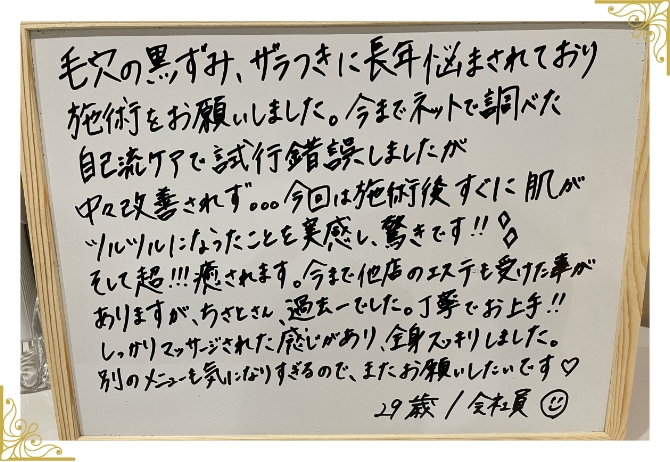 毛穴の黒ずみ、ザラつきに長年悩まされており
施術をお願いしました。今までネットで調べた
自己流ケアで試行錯誤しましたが
中々改善されず。。。今回は施術後すぐに肌が
ツルツルになったことを実感し、驚きです!!
そして超!!!癒されます。今まで他店のエステも受けた事が
ありますが、ちさとさん、過去一でした。丁寧でお上手!!
しっかりマッサージされた感じがあり、全身スッキリしました。
別のメニューも気になりすぎるので、またお願いしたいです♡
29歳/会社員